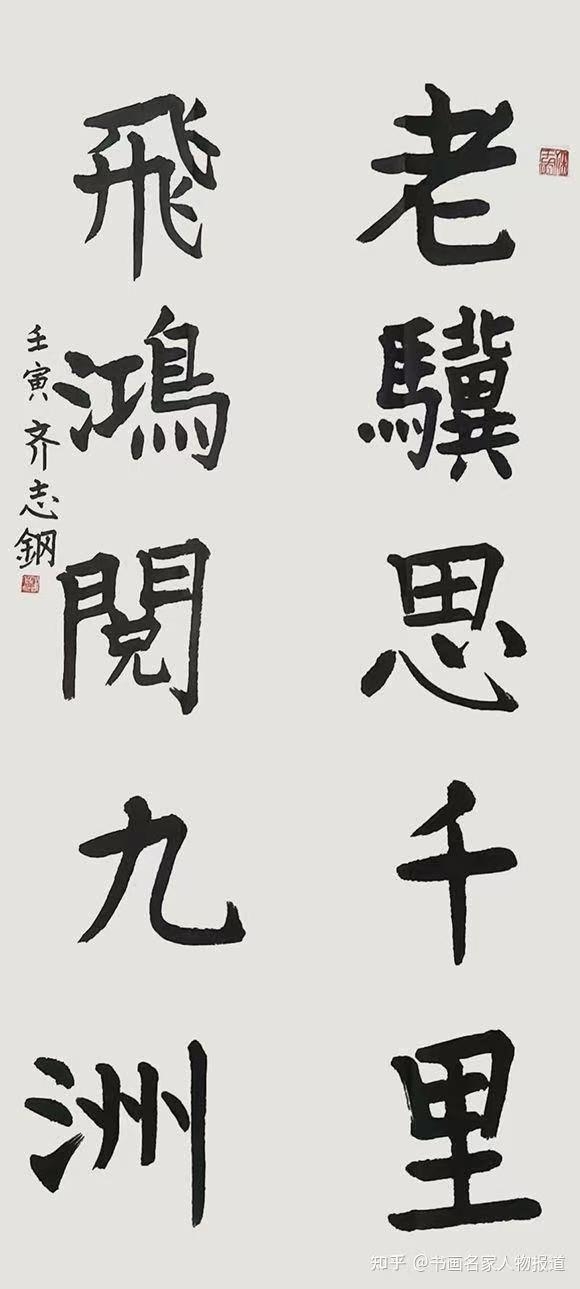 老驥思千里
飛鴻閱九洲
壬寅 齐志鋼
知乎 @书画名家人物报道